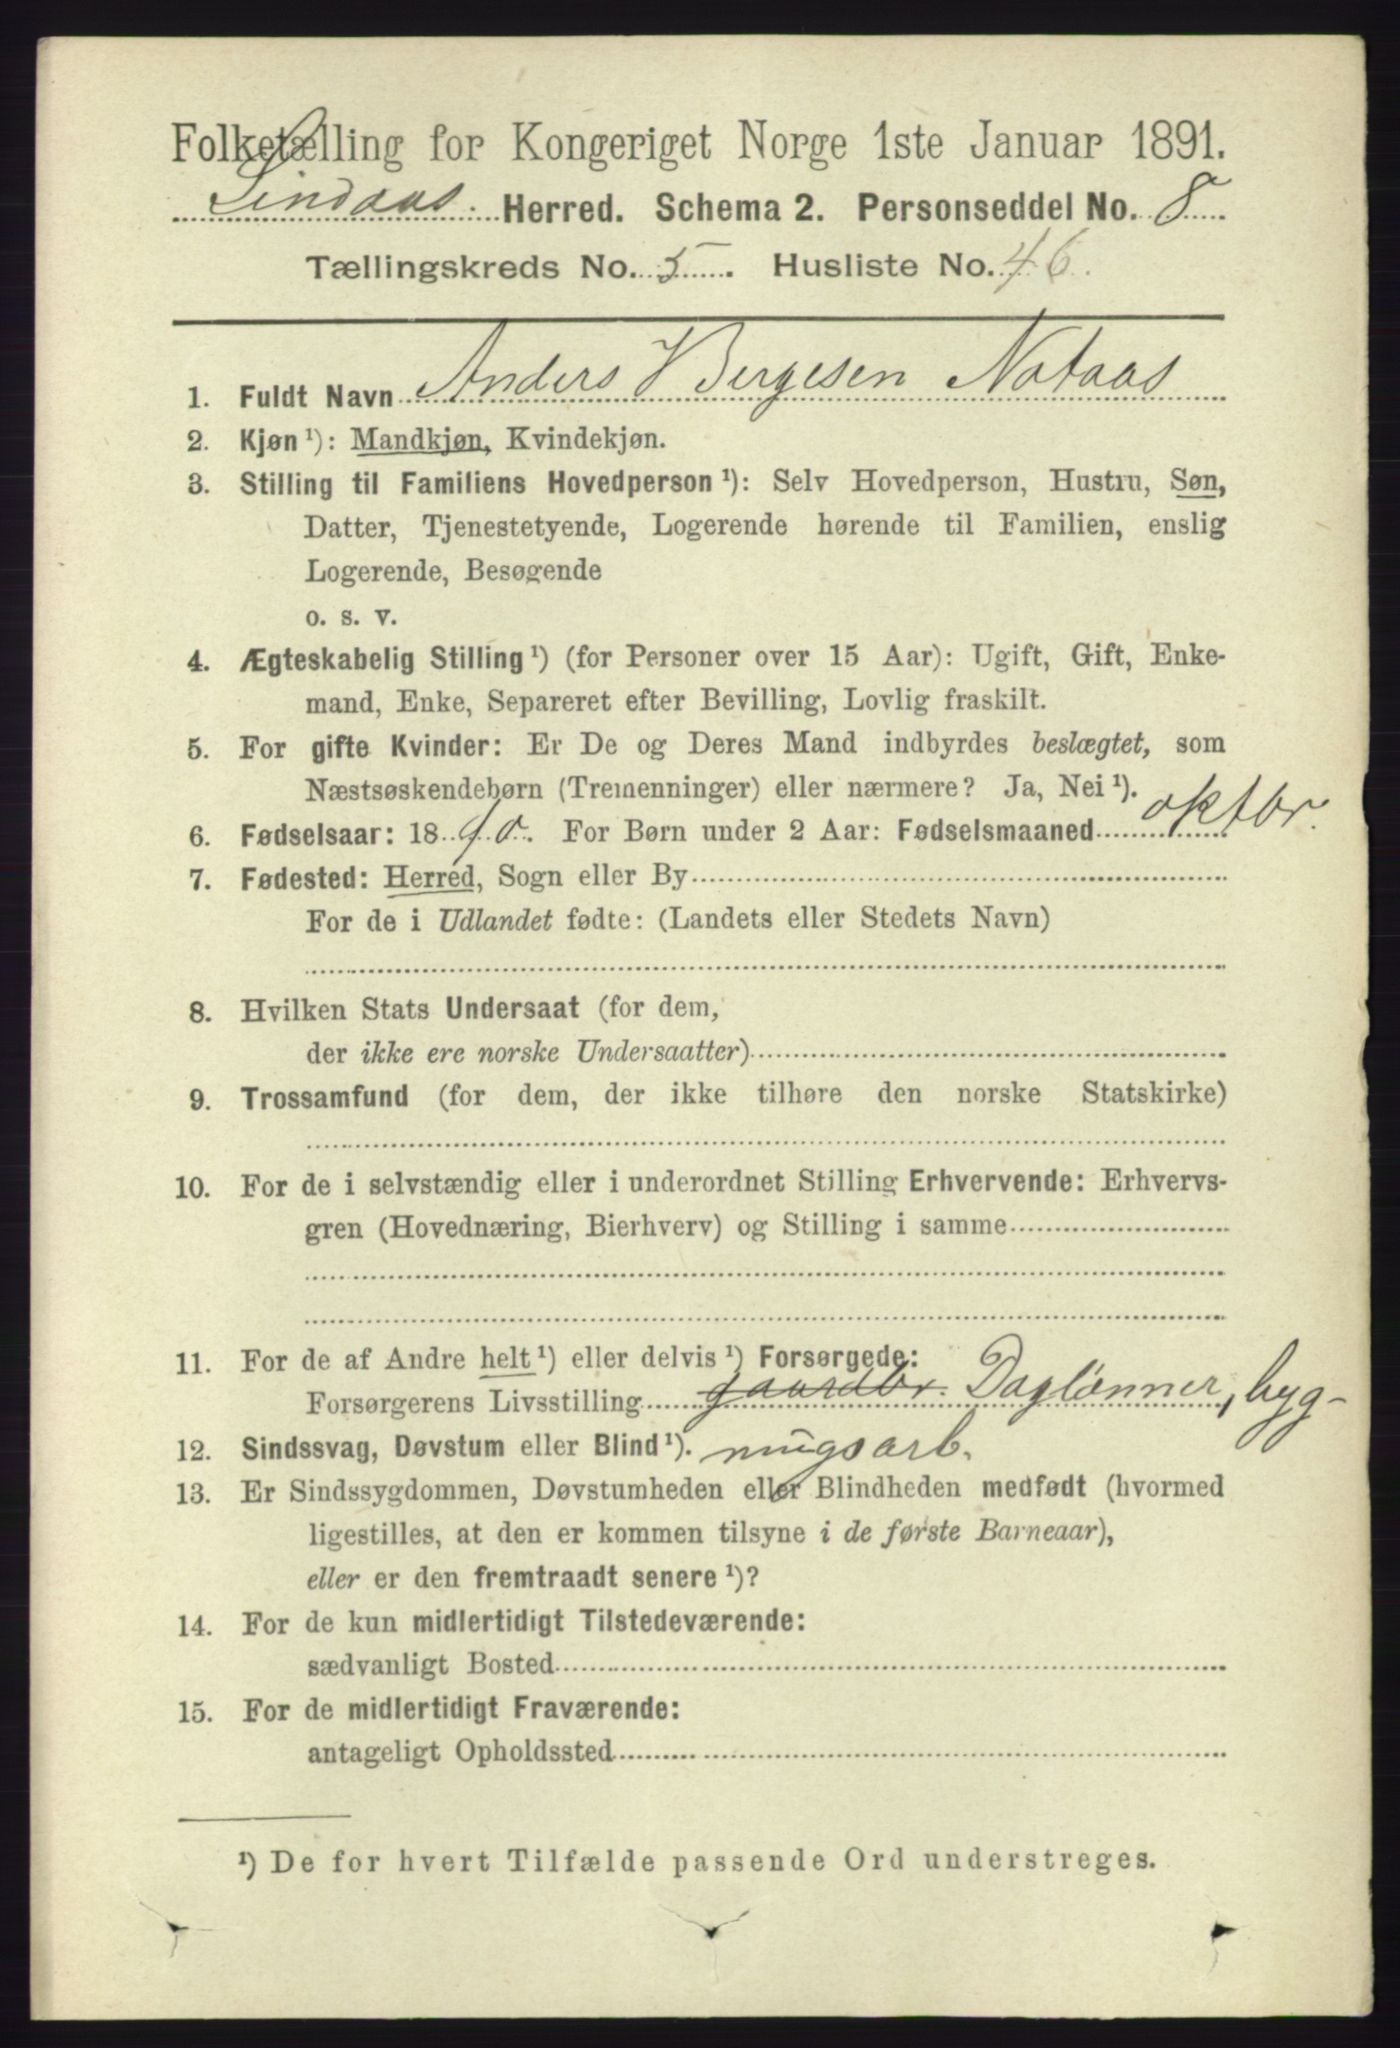 Folketælling for Kongeriget Norge 1ste Januar 1891.
Lindaas Herred. Schema 2. Personseddel No. 8
Tællingskreds No. 5. Husliste No. 46.
1. Fuldt Navn Anders Bergesen Nataas
2. Kjøn ¹): Mandkjøn, Kvindekjøn.
3. Stilling til Familiens Hovedperson ¹): Selv Hovedperson, Hustru, Søn,
Datter, Tjenestetyende, Logerende hørende til Familien, enslig
Logerende, Besøgende
o. s. v.
4. Ægteskabelig Stilling ¹) (for Personer over 15 Aar): Ugift, Gift, Enke-
mand, Enke, Separeret efter Bevilling, Lovlig fraskilt.
5. For gifte Kvinder: Er De og Deres Mand indbyrdes beslægtet, som
Næstsøskendebørn (Tremenninger) eller nærmere? Ja, Nei ¹).
6. Fødselsaar: 1890. For Børn under 2 Aar: Fødselsmaaned oktbr.
7. Fødested: Herred, Sogn eller By
For de i Udlandet fødte: (Landets eller Stedets Navn)
8. Hvilken Stats Undersaat (for dem,
der ikke ere norske Undersaatter)
9. Trossamfund (for dem, der ikke tilhøre den norske Statskirke)
10. For de i selvstændig eller i underordnet Stilling Erhvervende: Erhvervs-
gren (Hovednæring, Bierhverv) og Stilling i samme
11. For de af Andre helt ¹) eller delvis ¹) Forsørgede:
Forsørgerens Livsstilling gaardbr. Daglønner, byg-
12. Sindssvag, Døvstum eller Blind ¹). ningsarb.
13. Er Sindssygdommen, Døvstumheden eller Blindheden medfødt (hvormed
ligestilles, at den er kommen tilsyne i de første Barneaar),
eller er den fremtraadt senere ¹)?
14. For de kun midlertidigt Tilstedeværende:
sædvanligt Bosted
15. For de midlertidigt Fraværende:
antageligt Opholdssted
¹) De for hvert Tilfælde passende Ord understreges.